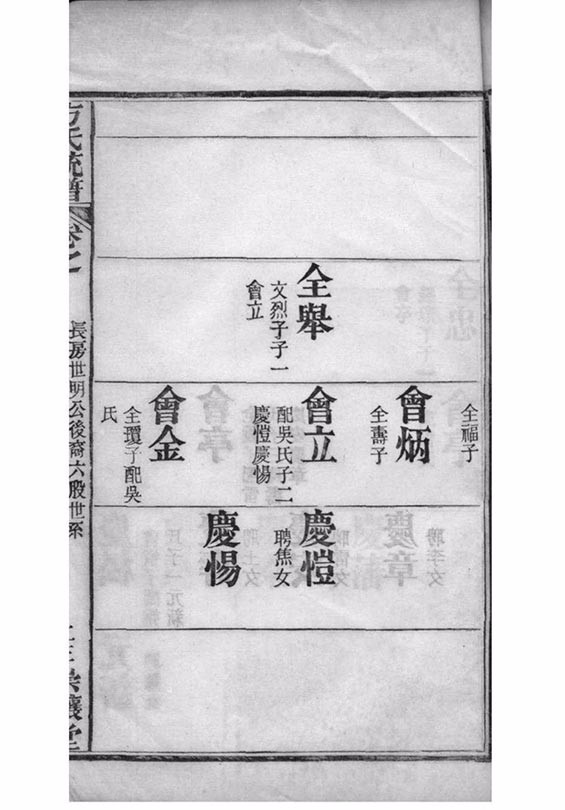 全舉
文烈子子一
會立
全福子
會炳
全壽子
會立
配吳氏子二
慶愷慶惕
會金
全瓊子配吳
氏
慶愷
聘焦女
慶惕
方氏統譜
卷之
長房世明公後裔六股世系